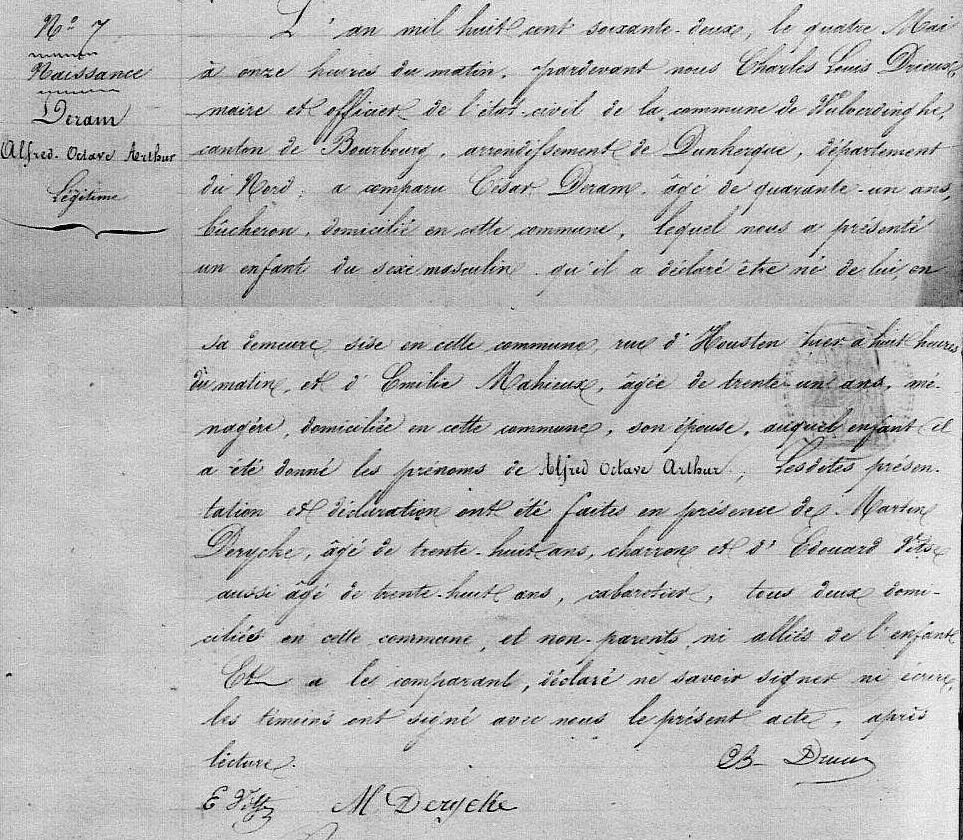 N.º 7
Naissance
Deram
Alfred Octave Arthur
Légitime
L'an mil huit cent soixante-deux, le quatre Mai
à onze heures du matin, pardevant nous Charles Louis Drieux
maire et officier de l'état civil de la commune de Wulverdinghe,
canton de Bourbourg, arrondissement de Dunkerque, département
du Nord; a comparu César Deram, âgé de quarante-un ans,
bûcheron, domicilié en cette commune, lequel nous a présenté
un enfant du sexe masculin qu'il a déclaré être né de lui, en
sa demeure, sise en cette commune, rue d'Housten hier à huit heures
du matin, et d'Emilie Mahieux, âgée de trente-un ans, mé-
nagère, domiciliée en cette commune, son épouse, auquel enfant il
a été donné les prénoms de Alfred Octave Arthur; Lesdites présen-
tation et déclaration ont été faites en présence de Martin
Derycke, âgé de trente-huit ans, charron et d'Edouard
aussi âgé de trente-huit ans, cabaretier, tous deux domi-
ciliés en cette commune, et non-parents ni alliés de l'enfant
Et a le comparant, déclaré ne savoir signer ni écrire,
les témoins ont signé avec nous le présent acte, après
lecture.
M Derycke